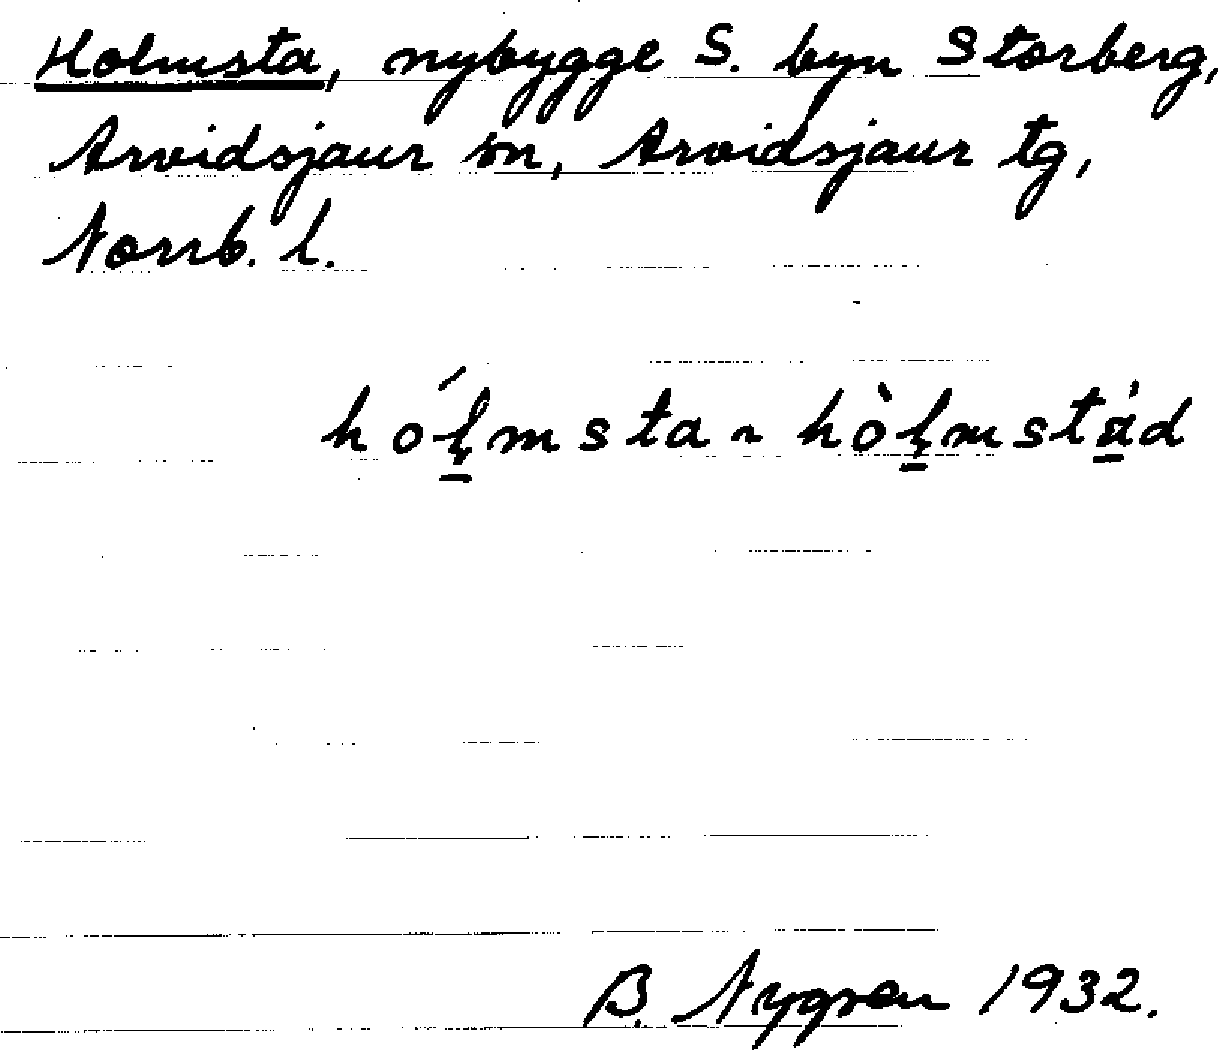 Holmsta, nybygge S. byn Storberg,
Arvidsjaur sn, Arvidsjaur tg,
Norrb. l.
hóḷ̱msta ~ hòḷ̱mstá̱d
B. Nygren 1932.